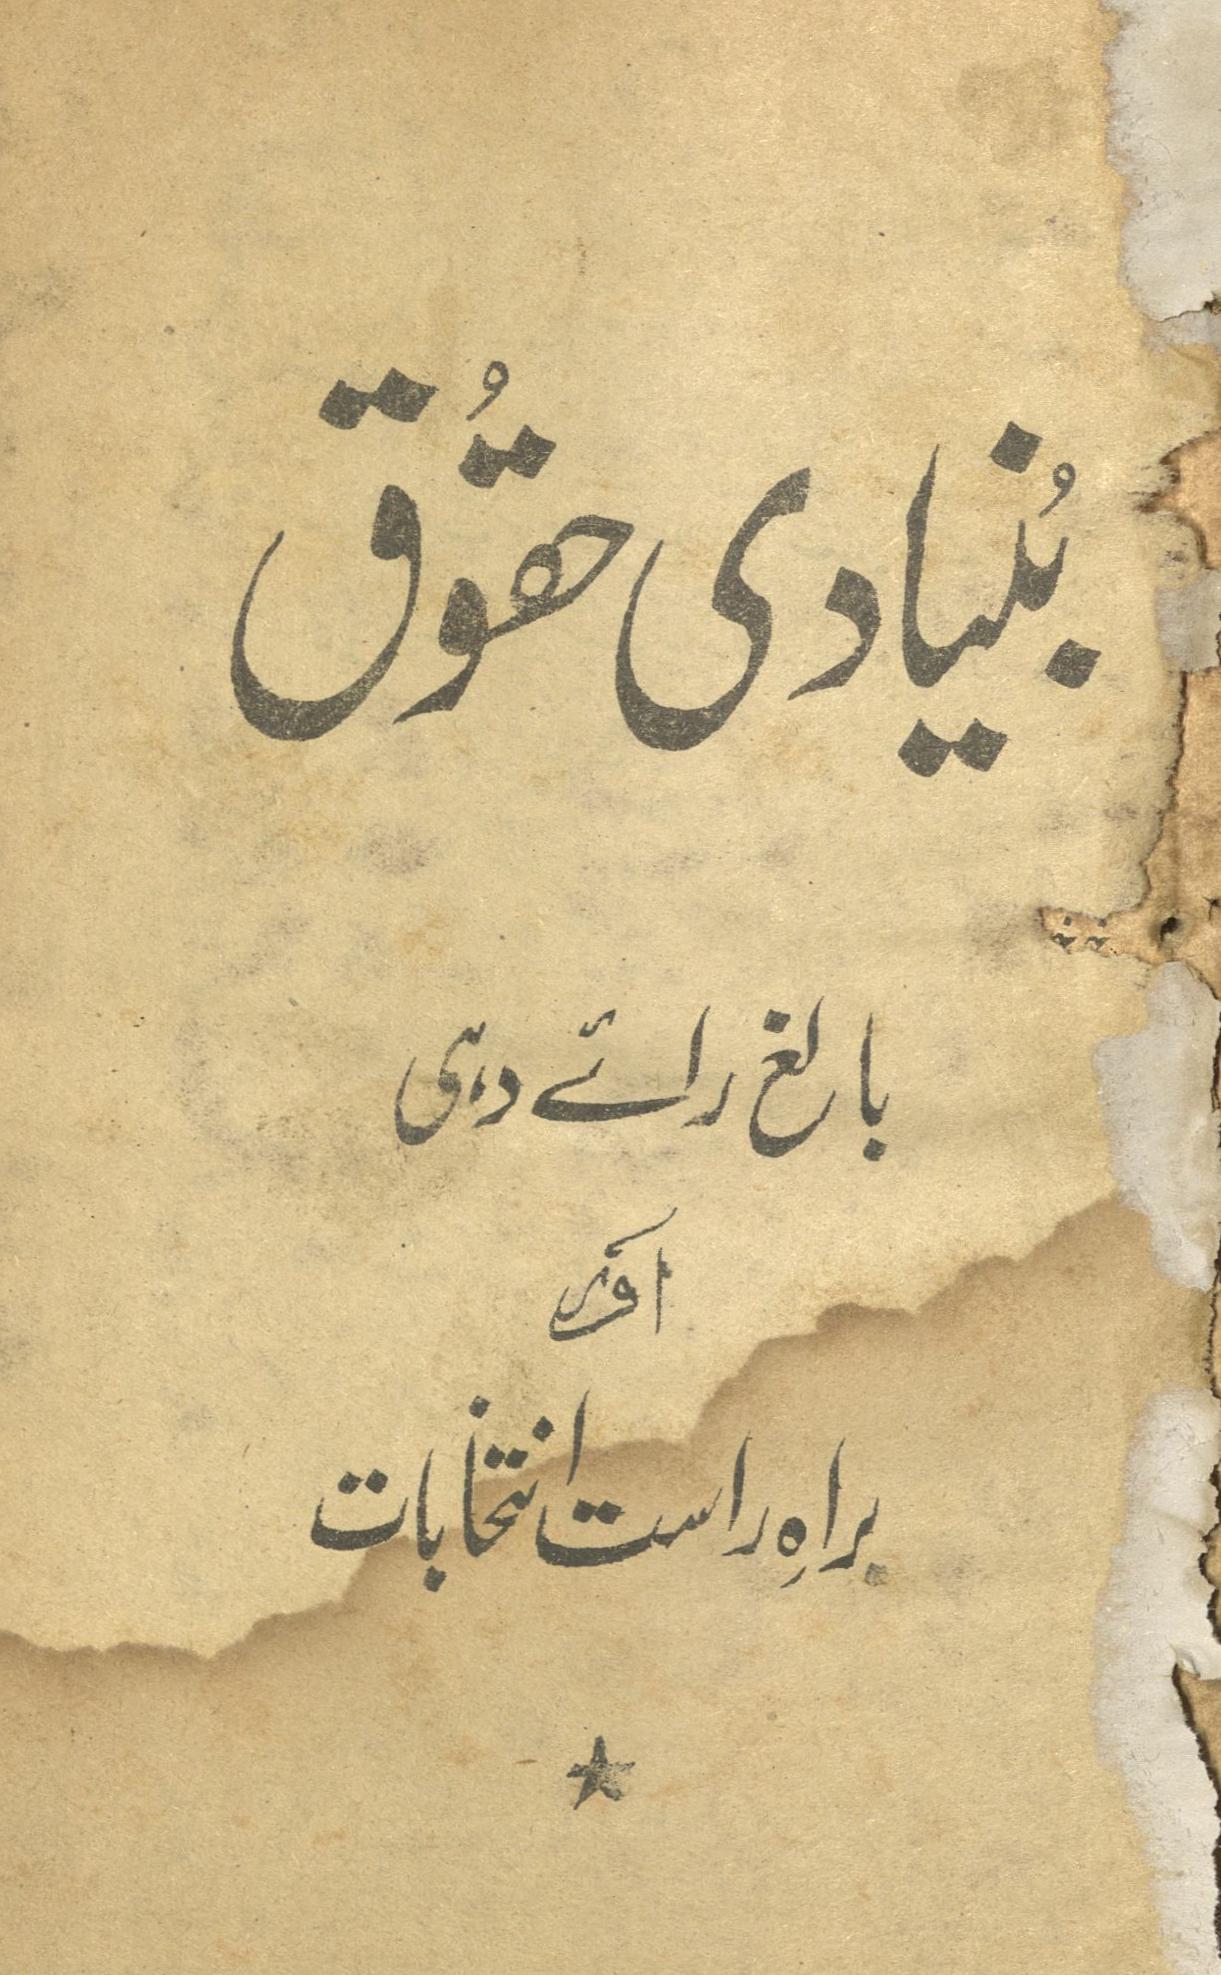 بُنیادی حقُوق
بالغ رائے دہی
اور
براہِ راست انتخابات